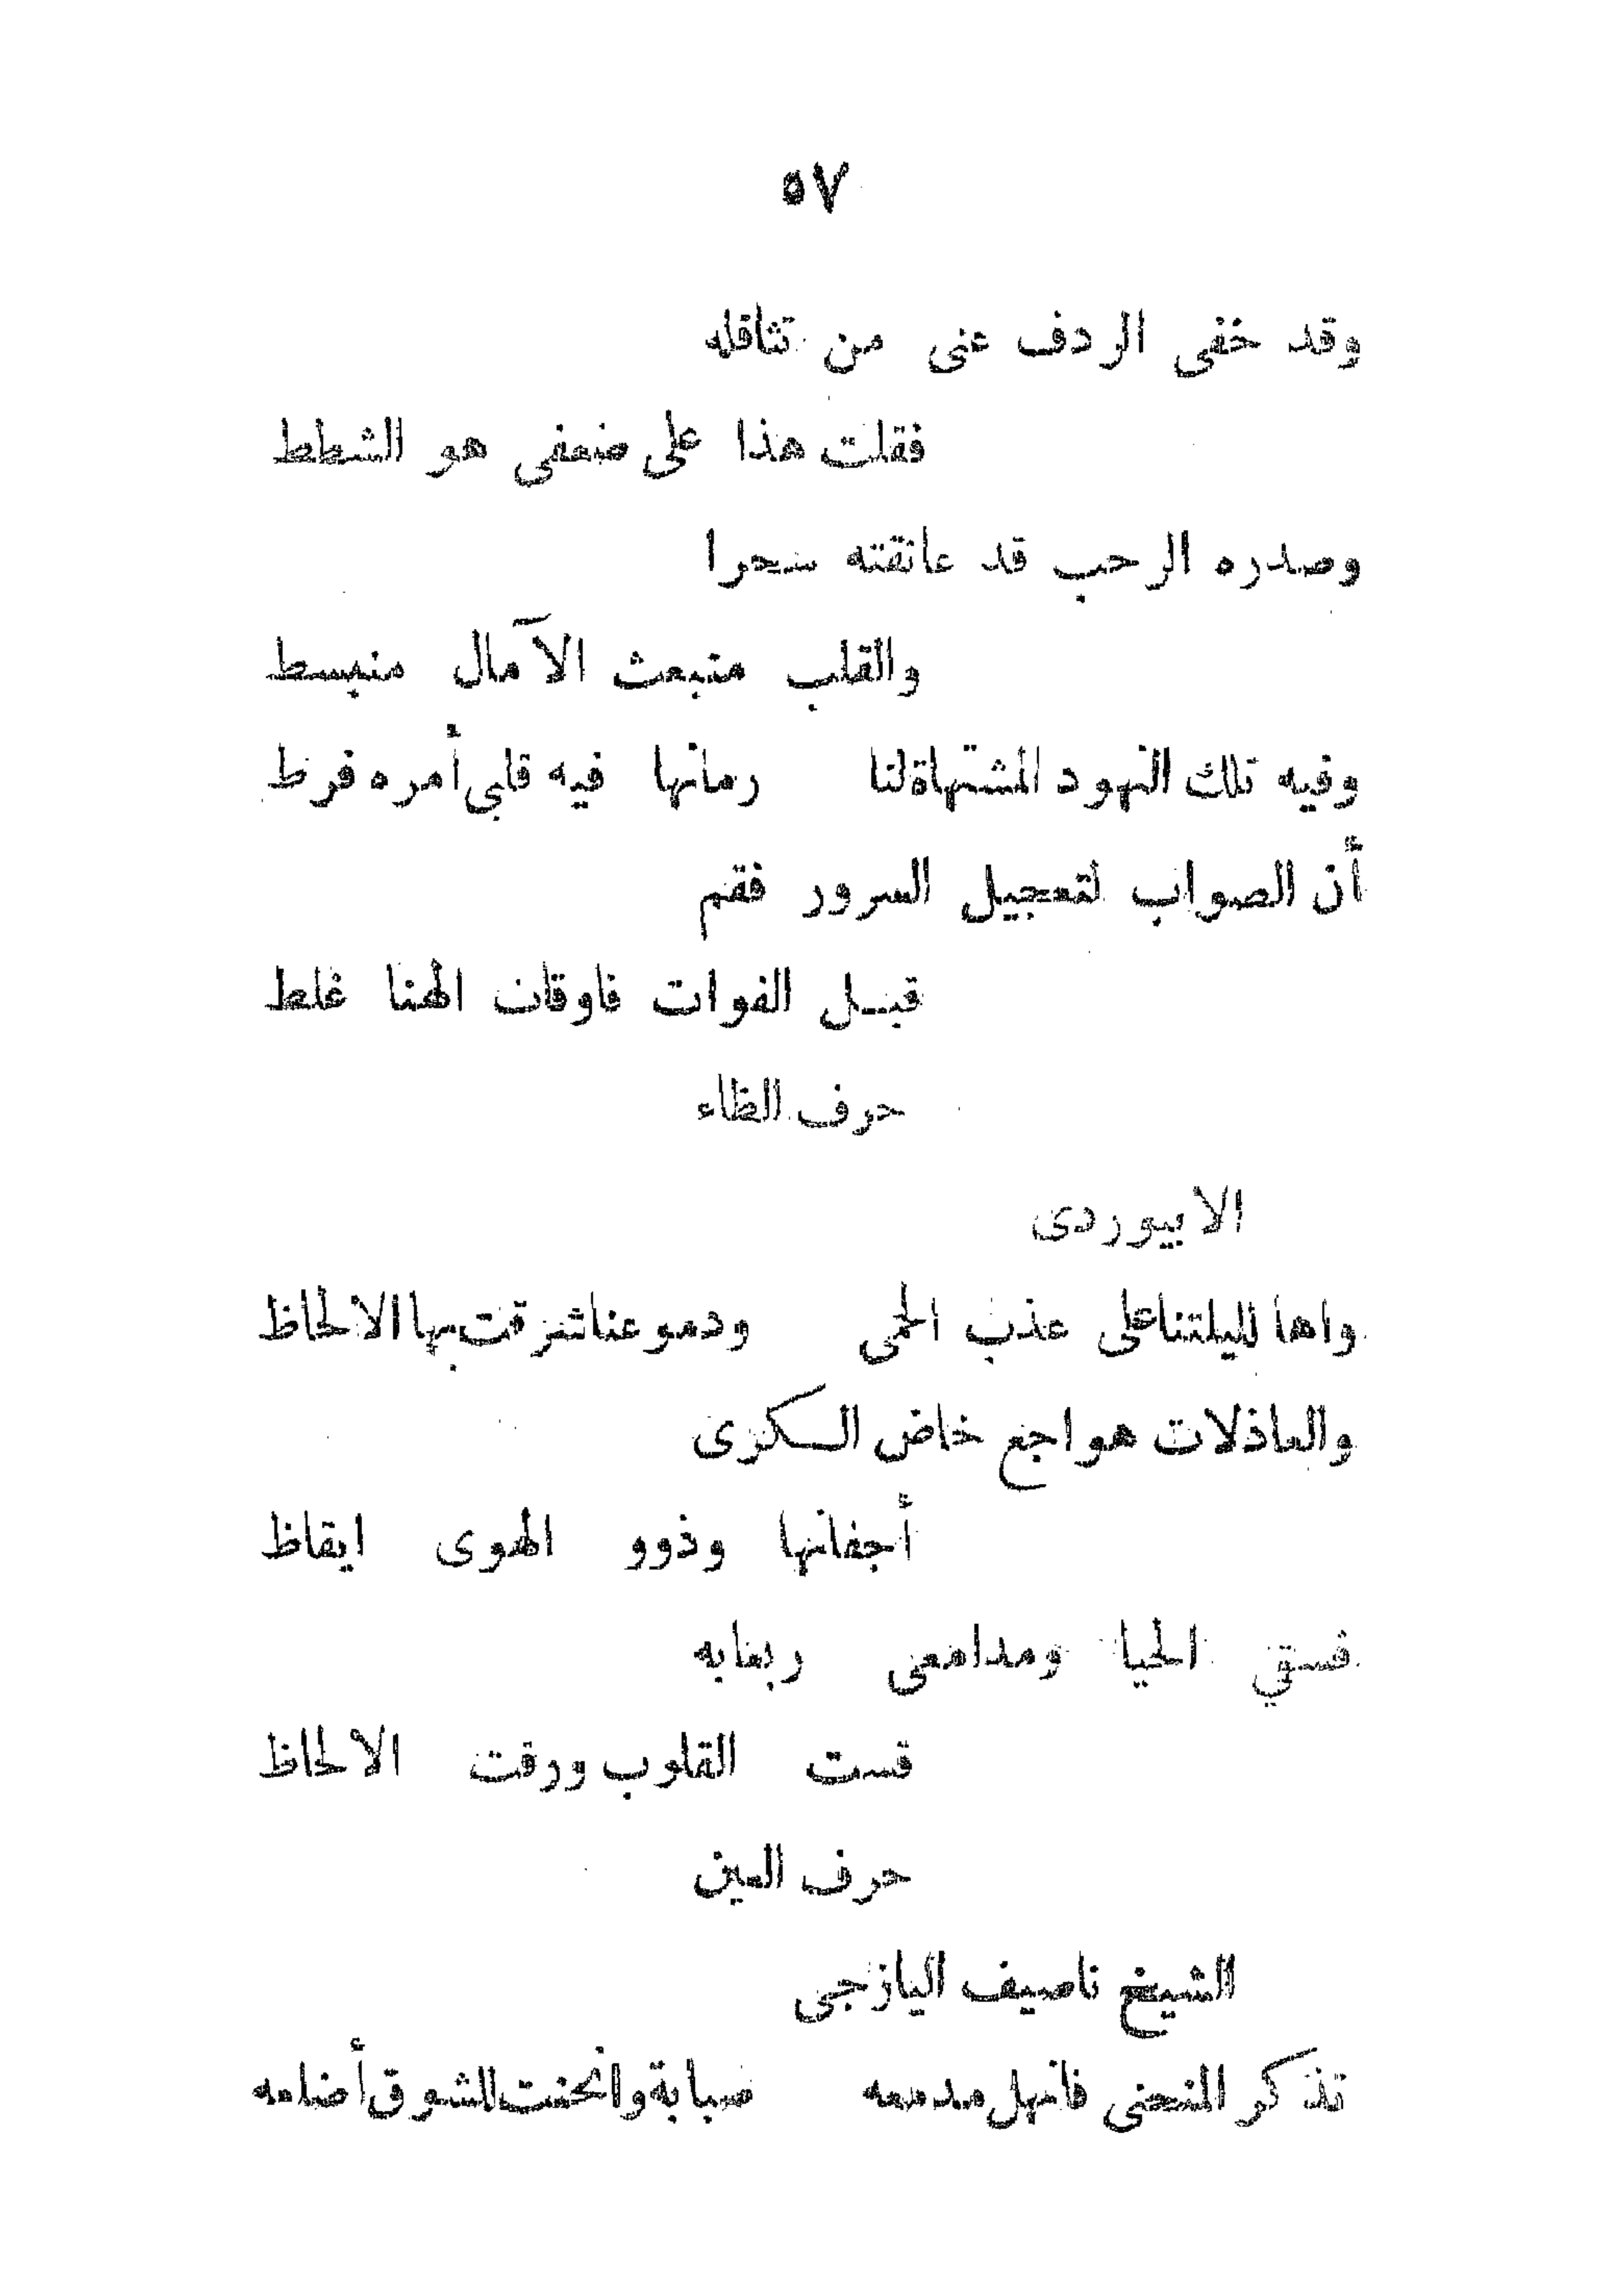 ٥٧
وقد خفى الردف عنى من تثاقله
فقلت هذا على ضعفى هو الشطط
وصدره الرحب قد عانقته سحرا
والقلب منبعث الآمال منبسط
وفيه تلك النهود المشتهاة لنا رمانها فيه قلبى أمره فرط
أن الصواب لتعجيل السرور فقم
قبل الفوات فاوقات الهنا غلط
حرف الظاء
الابيوردى
واها لليلتنا على عذب الحمى ودموعنا شرقت بها الالحاظ
والعاذلات هواجع خاض الكرى
أجفانها وذوو الهوى ايقاظ
فسقي الحيا ومدامعى ربعا به
قست القلوب ورقت الالحاظ
حرف العين
الشيخ ناصيف اليازجى
تذكر المنحنى فانهل مدمعه صبابة وانحنت للشوق أضلعه